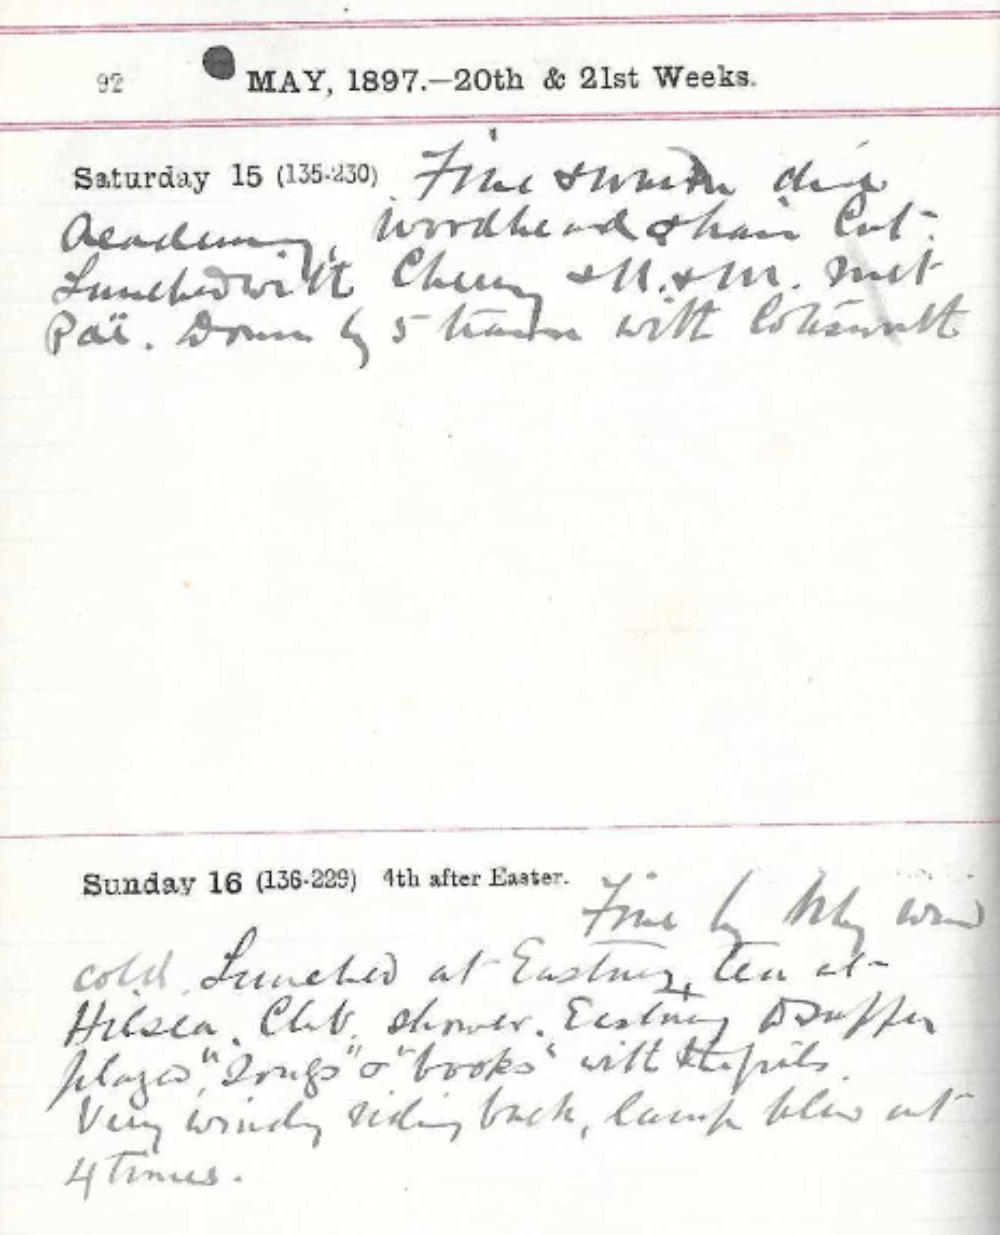 92 MAY, 1897.—20th & 21st Weeks.
Saturday 15 (135-230) Fine & warm did
Academy, Woodhead & hair Cut.
Lunched with Cherry & M. & M. met
Paï. Down by 5 train with
Sunday 16 (136-229) 4th after Easter.
Fine wind
cold. Lunched at Eastney, tea at
Hilsea. Club, shower. Eastney to Supper
played "Songs" & "books" with the girls.
Very windy riding back, lamp blew out
4 times.